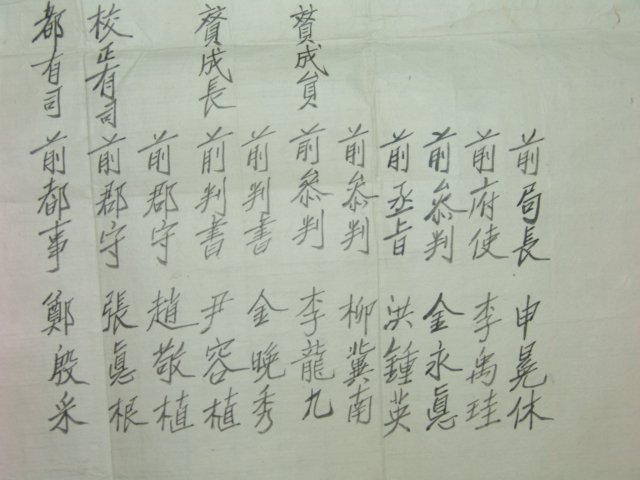 前局長 申冕休
前府使 李禹珪
前叅判 金永眞
前丞旨 洪鍾英
前叅判 柳冀南
贊成員 前叅判 李龍九
前判書 金晩秀
贊成長 前判書 尹容植
前郡守 趙敬植
校正有司 前郡守 張眞根
都有司 前都事 鄭殷采